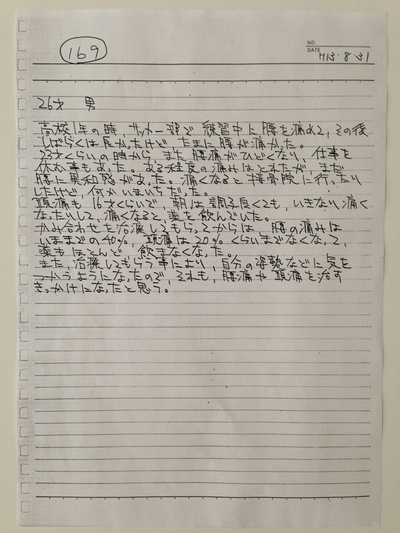 169
NO.
DATE H15・8・31
26才 男
高校1年の時、サッカー部で練習中に腰を痛めて、その後
しばらくは良かったけど、たまに腰が痛かった。
23才くらいの時から、また腰痛がひどくなり、仕事を
休む事もあった。ある程度の痛みはとれたが、まだ
腰に異和感があった。痛くなると接骨院に行ったり
したけど、何かいまいちだった。
頭痛も16才くらいで、朝は調子良くても、いきなり痛く
なったりして、痛くなると薬を飲んでいた。
かみ合わせを治療してもらってからは、腰の痛みは
いままでの40%、頭痛は20%くらいまでなくなって、
薬もほとんど飲まなくなった。
また、治療してもらう事により、自分の姿勢などに気を
つかうようになったので、それも、腰痛や頭痛を治す
きっかけになったと思う。